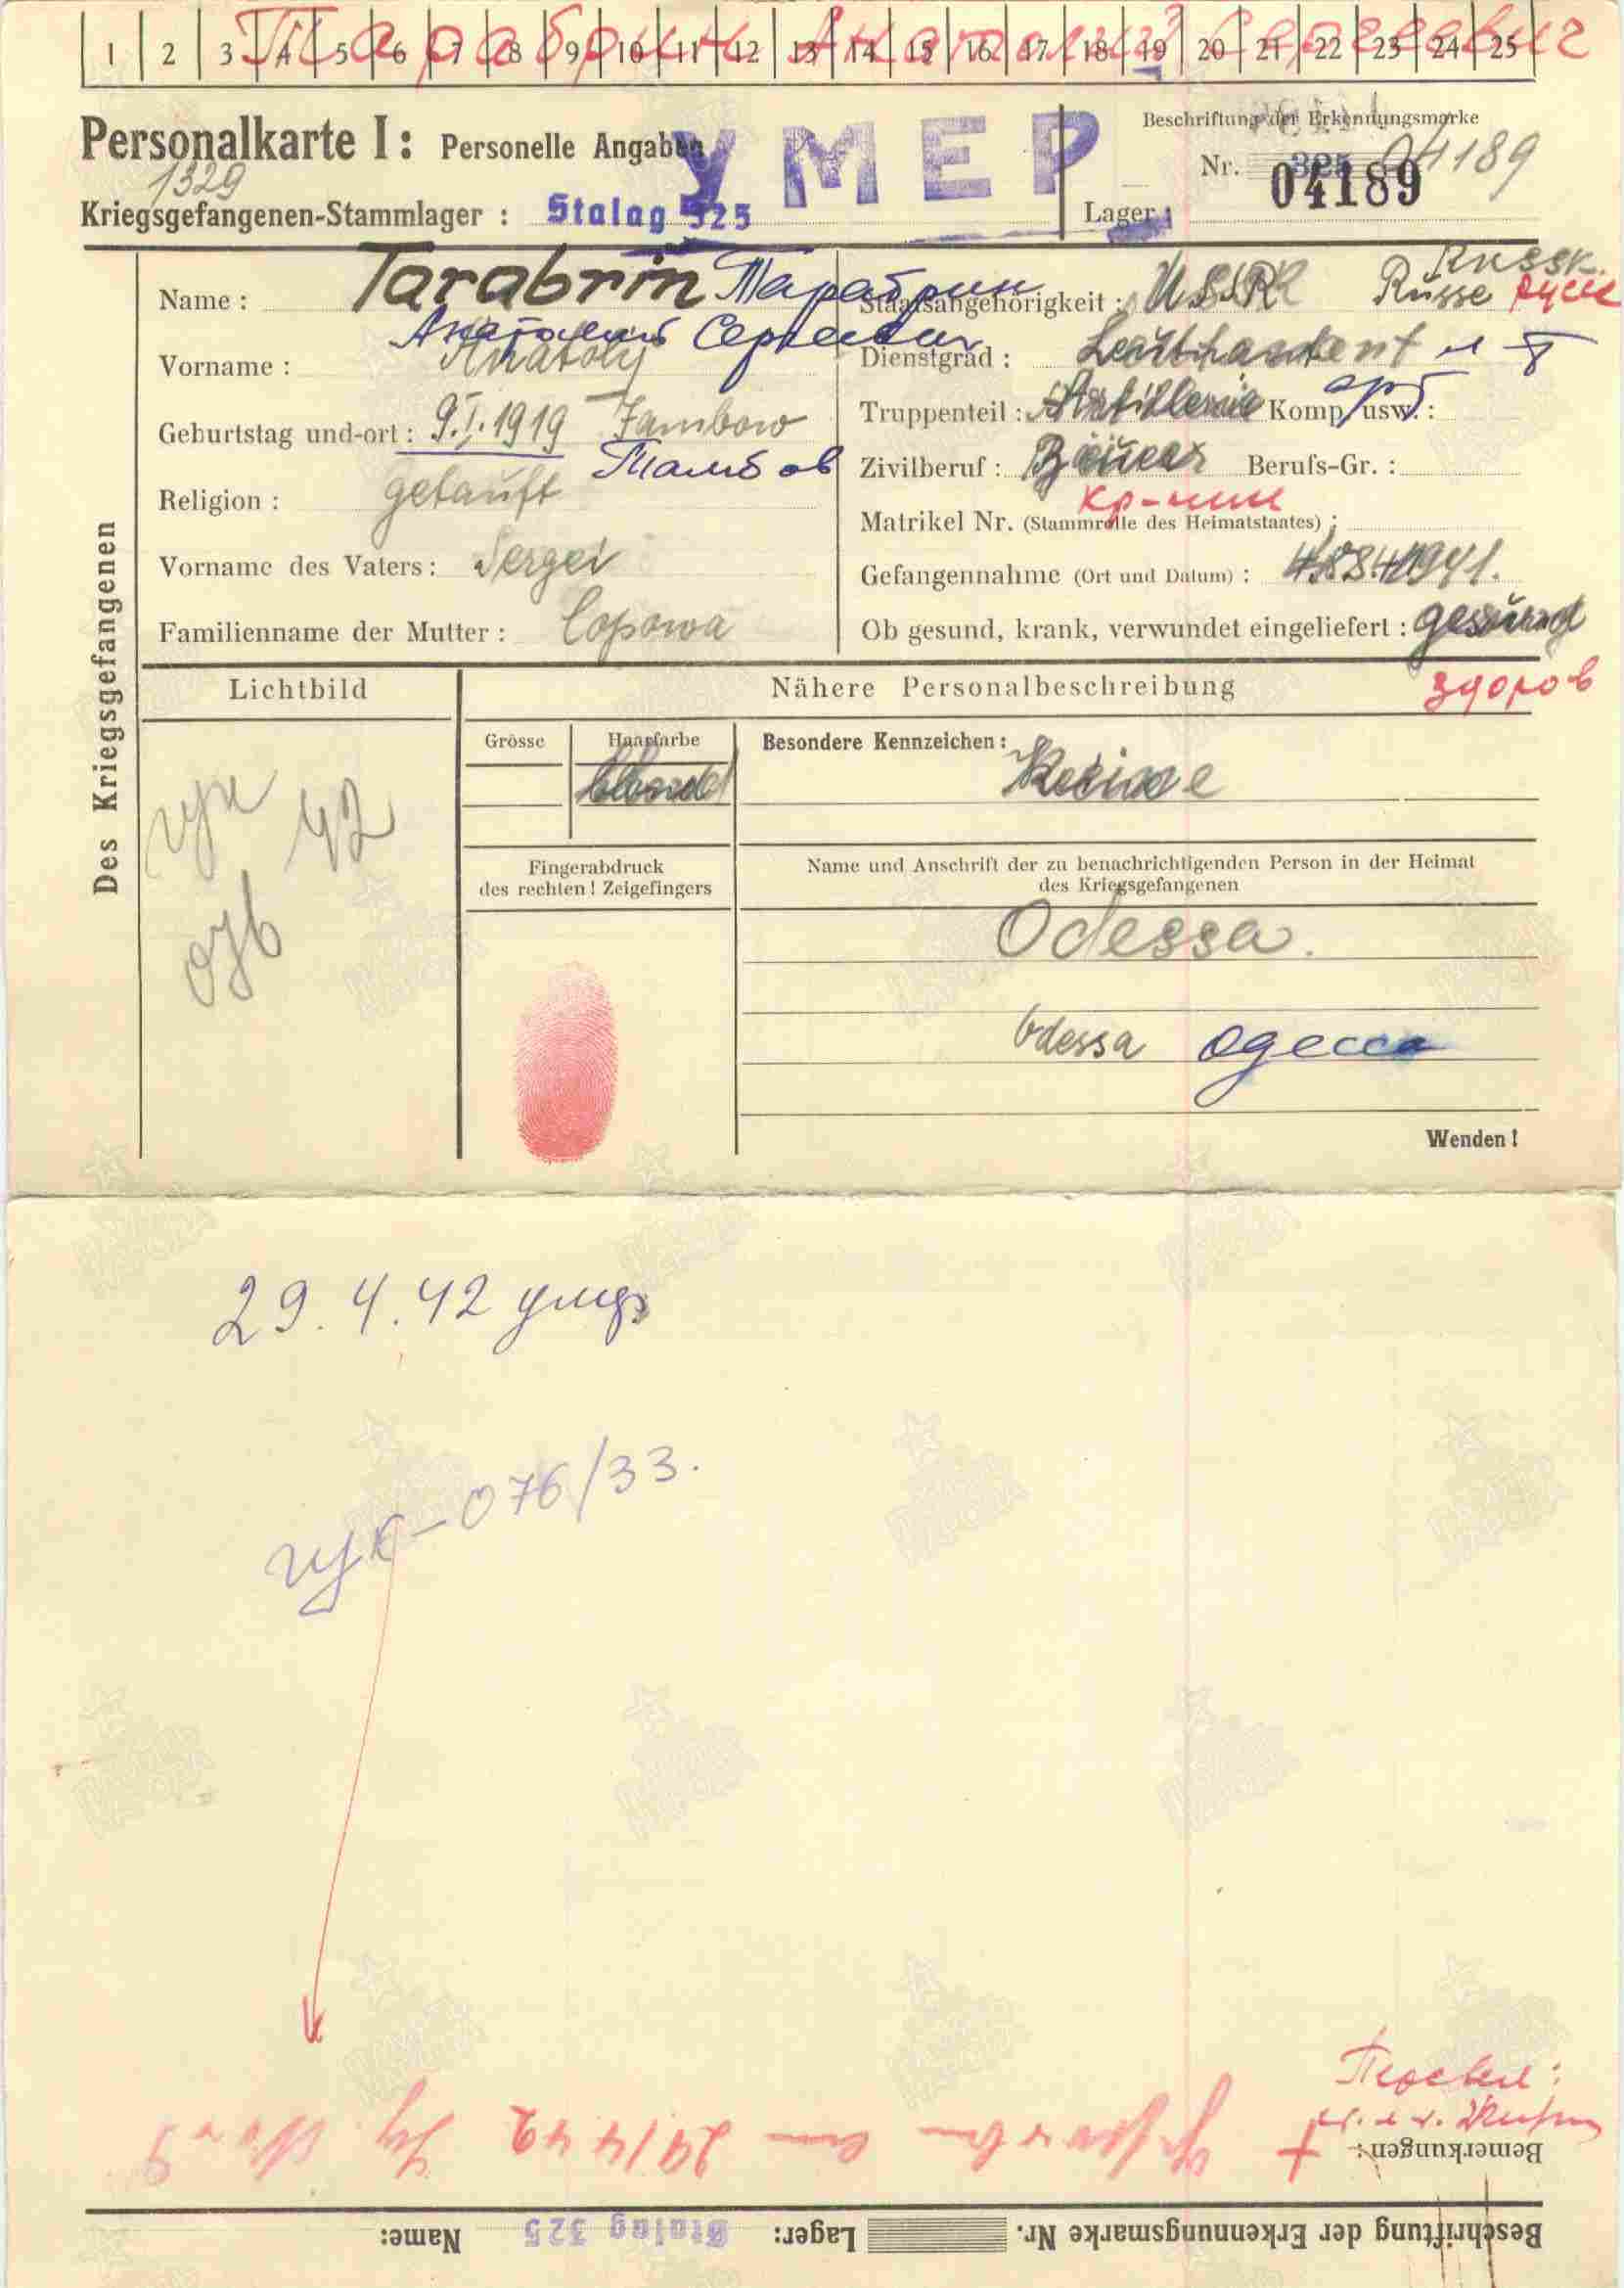 1 2 3 4 5 6 7 8 9 10 11 12 13 14 15 16 17 18 19 20 21 22 23 24 25
Тарабрин Анатолий Сергеевич
Personalkarte I: Personelle Angaben
УМЕР
Beschriftung der Erkennungsmarke
Nr. 325 04189
04189
1329
Kriegsgefangenen-Stammlager : Stalag 325
Lager :
Des Kriegsgefangenen
Name : Tarabrin Тарабрин
Анатолий Сергеевич
Vorname : Anatoly
Geburtstag und-ort : 9.I.1919 Tambow
Тамбов
Religion : getauft
Vorname des Vaters : Sergei
Familienname der Mutter : Copowa
Staatsangehörigkeit : USSR Russe Russk.
Dienstgrad : Leutnant
Truppenteil : Artillerie Komp. usw. :
арт
Zivilberuf : Bauer Berufs-Gr. :
кр-нин
Matrikel Nr. (Stammrolle des Heimatstaates) :
Gefangennahme (Ort und Datum) :
Ob gesund, krank, verwundet eingeliefert : gesund
здоров
Lichtbild
гук 42
076
Nähere Personalbeschreibung
Grösse
Haarfarbe
blond
Besondere Kennzeichen :
Keine
Fingerabdruck
des rechten ! Zeigefingers
Name und Anschrift der zu benachrichtigenden Person in der Heimat
des Kriegsgefangenen
Odessa.
Odessa Одесса
Wenden !
29.4.42 умер
гук-076/33.
Bemerkungen:
Beschriftung der Erkennungsmarke Nr. Lager: Stalag 325 Name: